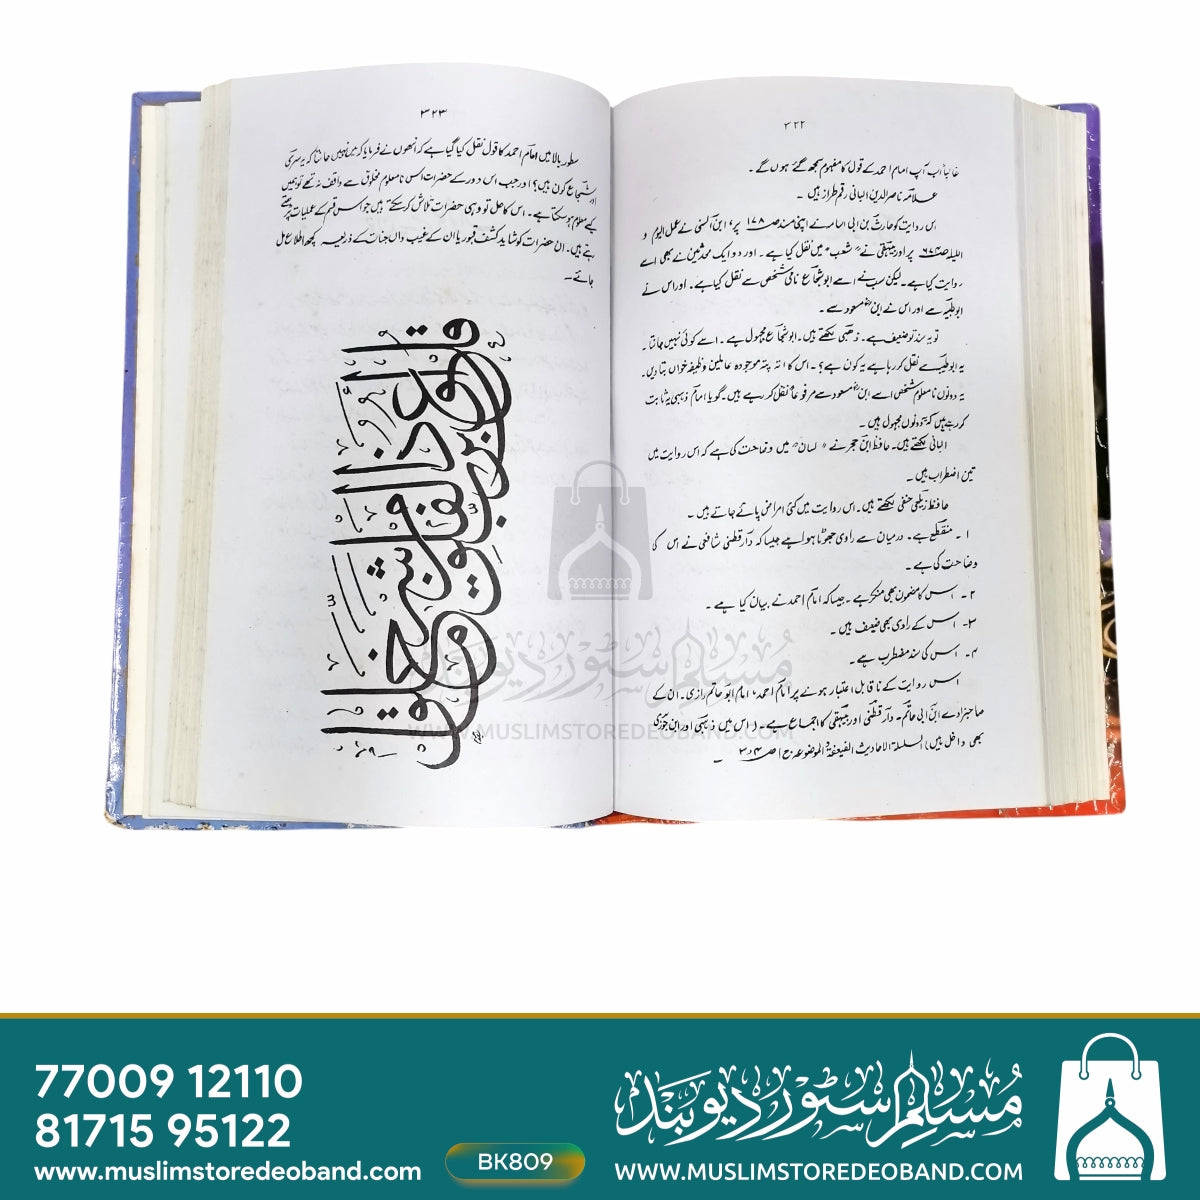 ۳۲۲
غالباً اب آپ امام احمد کے قول کا مفہوم سمجھ گئے ہوں گے۔
علامہ ناصرالدین البانی رقم طراز ہیں۔
اس روایت کو حارث بن ابی اسامہ نے اپنی مسند صـ ۱۷۸ پر، ابن السنی نے عمل الیوم و
اللیلہ صـ ۶۷۴ پر اور بیہقی نے "شعب" میں نقل کیا ہے۔ اور دو ایک محدثین نے بھی اسے
روایت کیا ہے۔ لیکن سب نے اسے ابو شجاع نامی شخص سے نقل کیا ہے۔ اور اس نے
ابوطیبہ سے اور اس نے ابن مسعود سے۔
تو یہ سند تو ضعیف ہے۔ ذھبی لکھتے ہیں۔ ابو شجاع مجہول ہے۔ اسے کوئی نہیں جانتا۔
یہ ابوطیبہ سے نقل کر رہا ہے یہ کون ہے؟۔ اس کا اتہ پتہ موجودہ عاملین وظیفہ خواں بتا دیں۔
یہ دونوں نامعلوم شخص اسے ابن مسعود سے مرفوعاً نقل کر رہے ہیں۔ گویا امام ذہبی یہ ثابت
کر رہے ہیں کہ دونوں مجہول ہیں۔
البانی لکھتے ہیں۔ حافظ ابن حجر نے "لسان" میں وضاحت کی ہے کہ اس روایت میں
تین اضطراب ہیں۔
حافظ زیلعی حنفی لکھتے ہیں۔ اس روایت میں کئی امراض پائے جاتے ہیں۔
۱۔ منقطع ہے۔ درمیان سے راوی چھوٹا ہوا ہے جیسا کہ دارقطنی شافعی نے اس کی
وضاحت کی ہے۔
۲۔ اس کا مضمون بھی منکر ہے۔ جیسا کہ امام احمد نے بیان کیا ہے۔
۳۔ اس کے راوی بھی ضعیف ہیں۔
۴۔ اس کی سند مضطرب ہے۔
اس روایت کے ناقابل اعتبار ہونے پر امام احمد، امام ابو حاتم رازی۔ ان کے
صاحبزادے ابن ابی حاتم۔ دارقطنی اور بیہقی کا اجماع ہے۔ (اس میں ذہبی اور ابن جوزی
بھی داخل ہیں) السلسلۃ الاحادیث الضعیفۃ الموضوعہ ج ا ص
۳۲۳
سطور بالا میں امام احمد کا قول نقل کیا گیا ہے کہ انھوں نے فرمایا کہ میں نہیں جانتا کہ یہ سری
اور شجاع کون ہیں؟ اور جب اس دور کے حضرات اس نامعلوم مخلوق سے واقف نہ تھے تو ہمیں
کیسے معلوم ہو سکتا ہے۔ اس کا حل تو وہی حضرات تلاش کر سکتے ہیں جو اس قسم کے عملیات پڑھتے
رہتے ہیں۔ ان حضرات کو شاید کشف قبور یا ان کے غیب داں جنات کے ذریعہ کچھ اطلاع مل
جائے۔
مسلم سٹور دیوبند
WWW.MUSLIMSTOREDEOBAND.COM
77009 12110
81715 95122
www.muslimstoredeoband.com
BK809
مسلم سٹور دیوبند
WWW.MUSLIMSTOREDEOBAND.COM